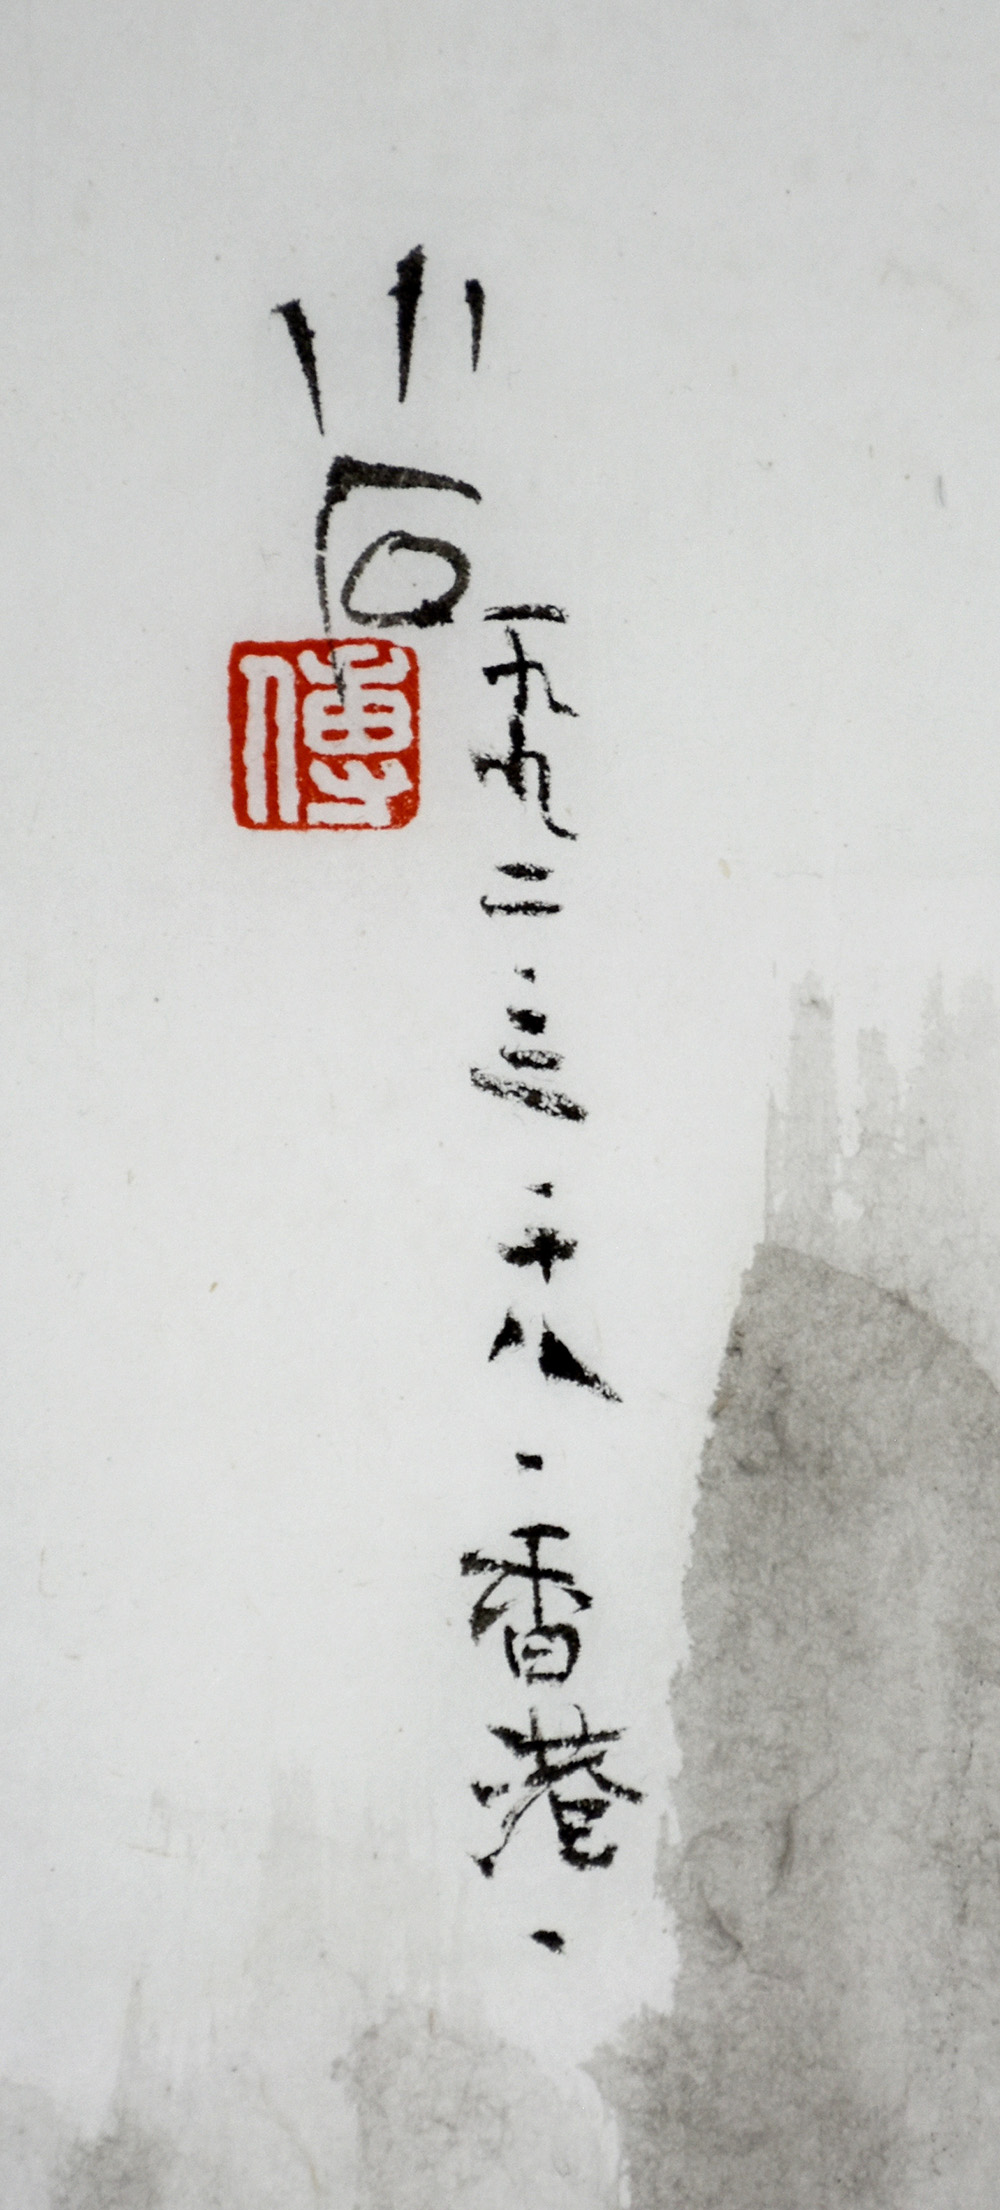 一九九二·三·十八·香港·
小石
傅